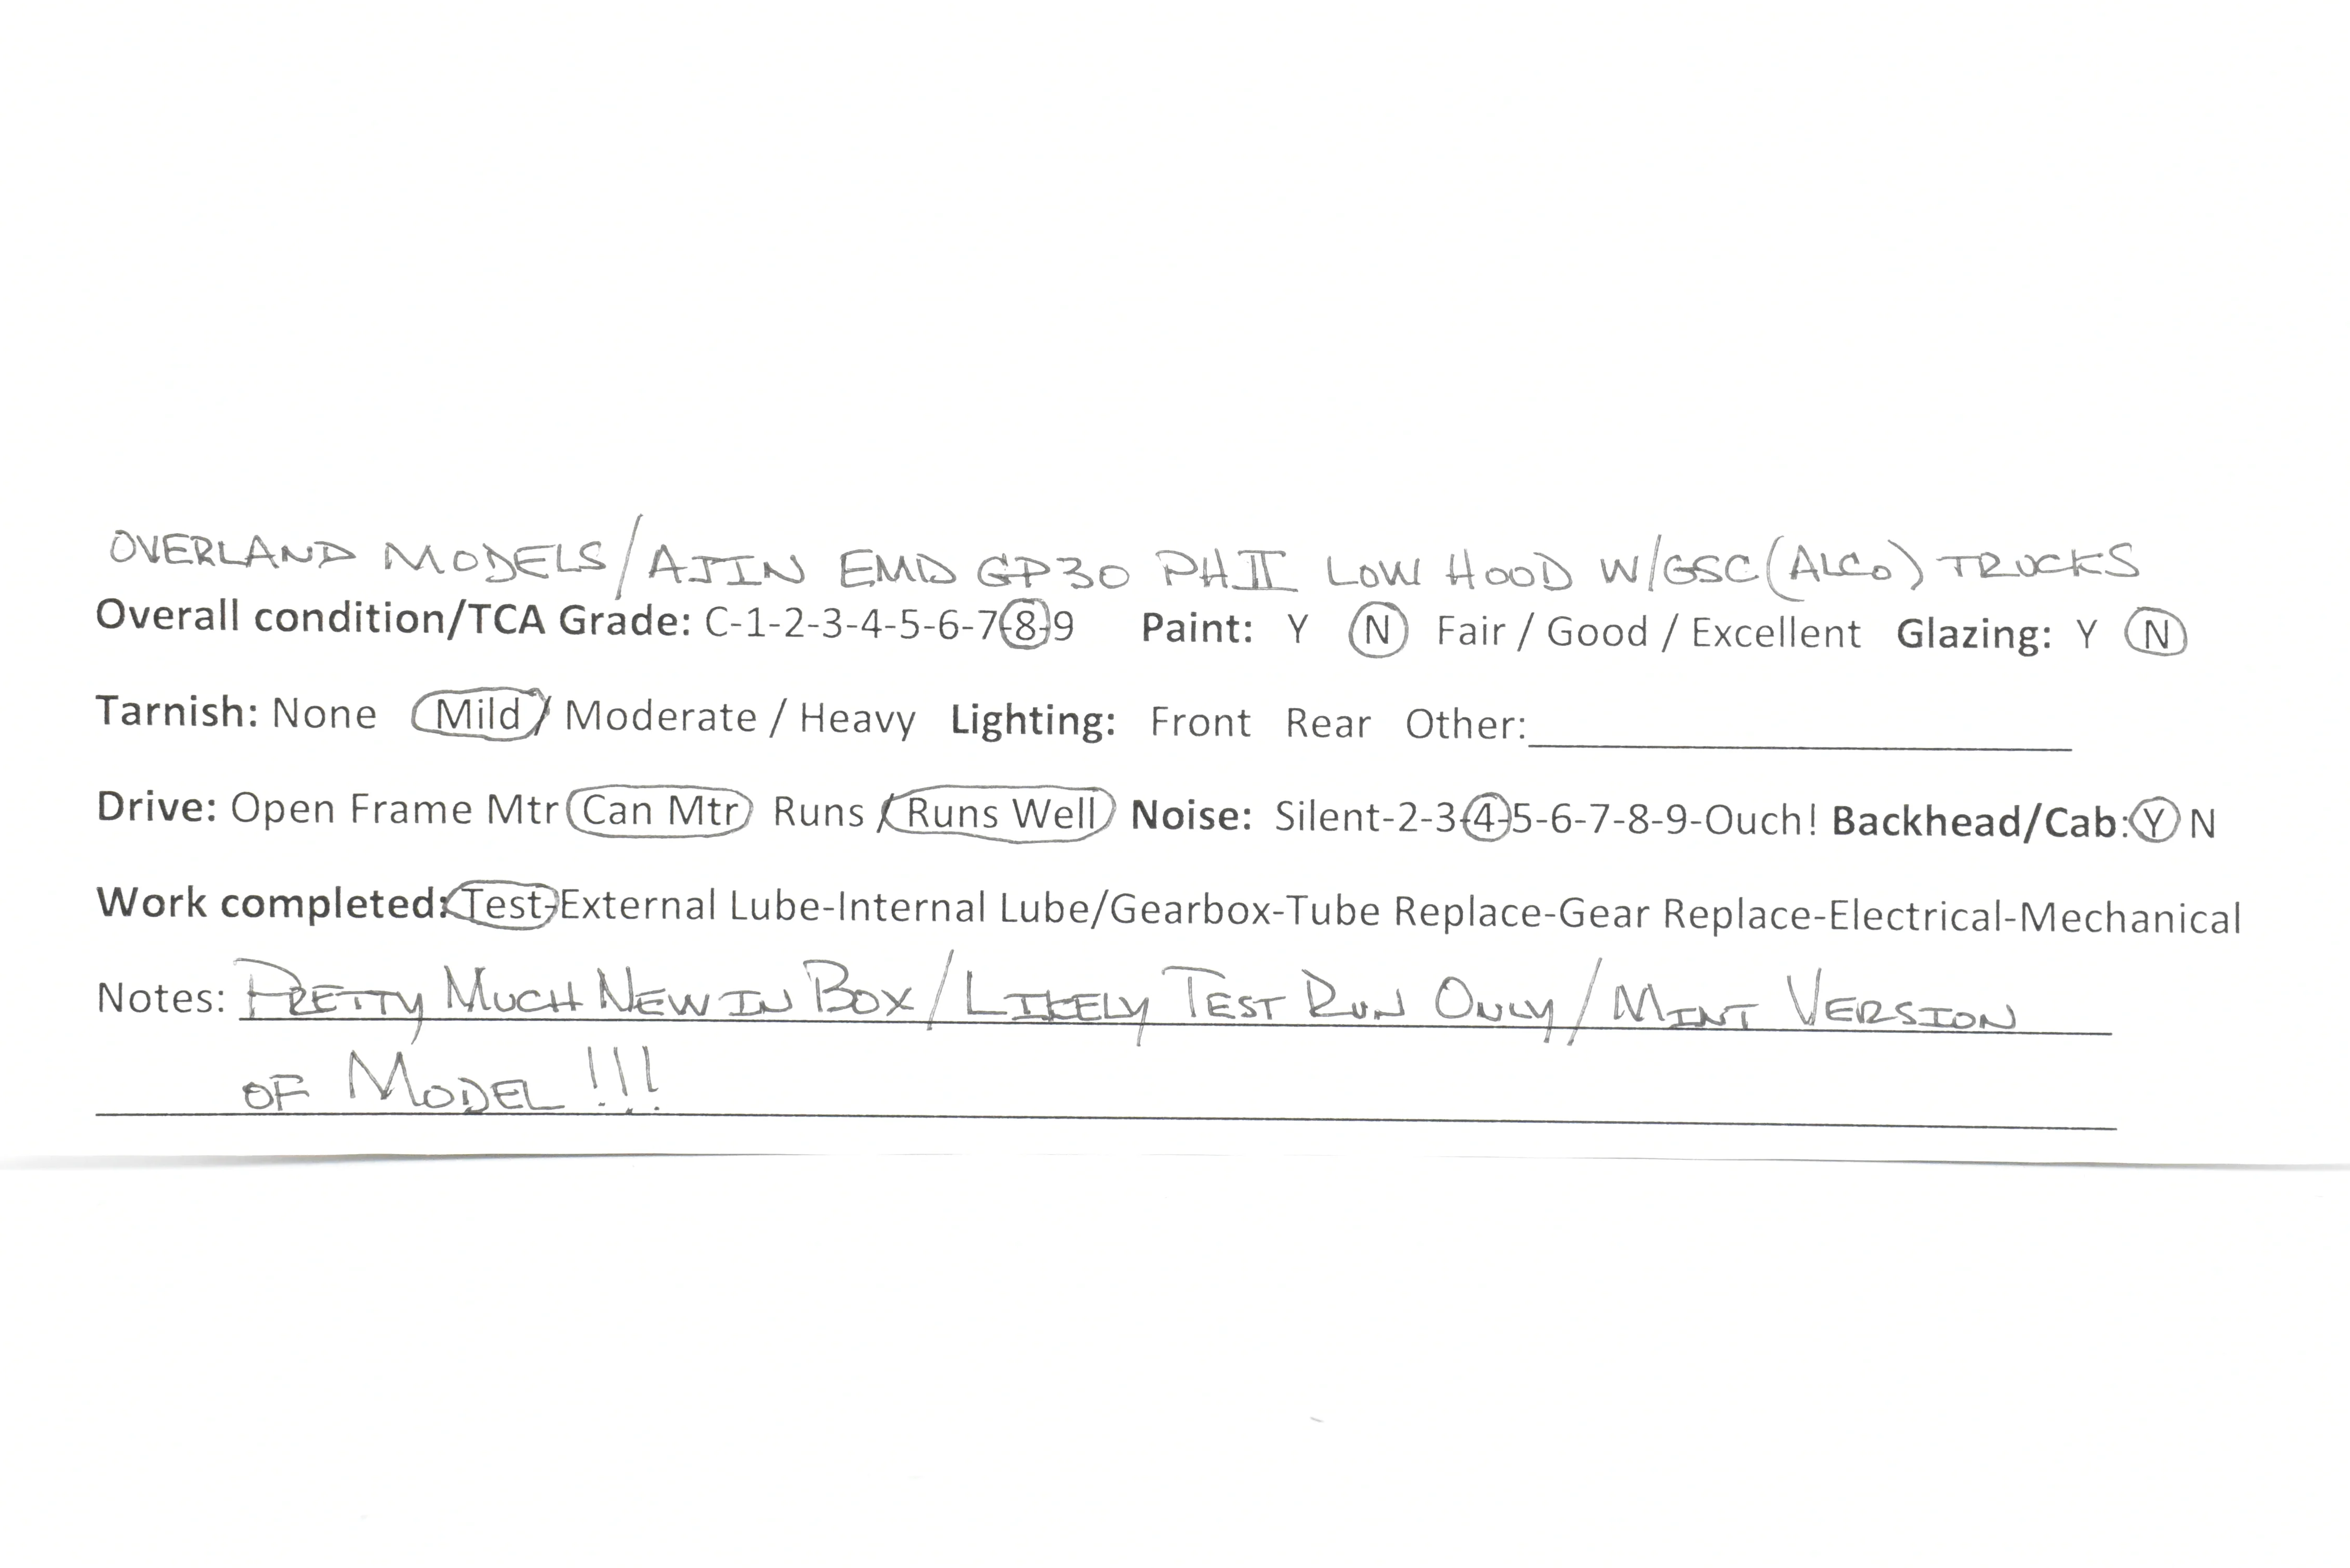 OVERLAND MODELS/AJIN EMD GP30 PHII LOW HOOD W/GSC(ALCO) TRUCKS
Overall condition/TCA Grade: C-1-2-3-4-5-6-7-8-9 Paint: Y N Fair / Good / Excellent Glazing: Y N
Tarnish: None Mild / Moderate / Heavy Lighting: Front Rear Other:
Drive: Open Frame Mtr Can Mtr Runs / Runs Well Noise: Silent-2-3-4-5-6-7-8-9-Ouch! Backhead/Cab: Y N
Work completed: Test-External Lube-Internal Lube/Gearbox-Tube Replace-Gear Replace-Electrical-Mechanical
Notes: PRETTY MUCH NEW IN BOX/LIKELY TEST RUN ONLY/MINT VERSION
OF MODEL!!!